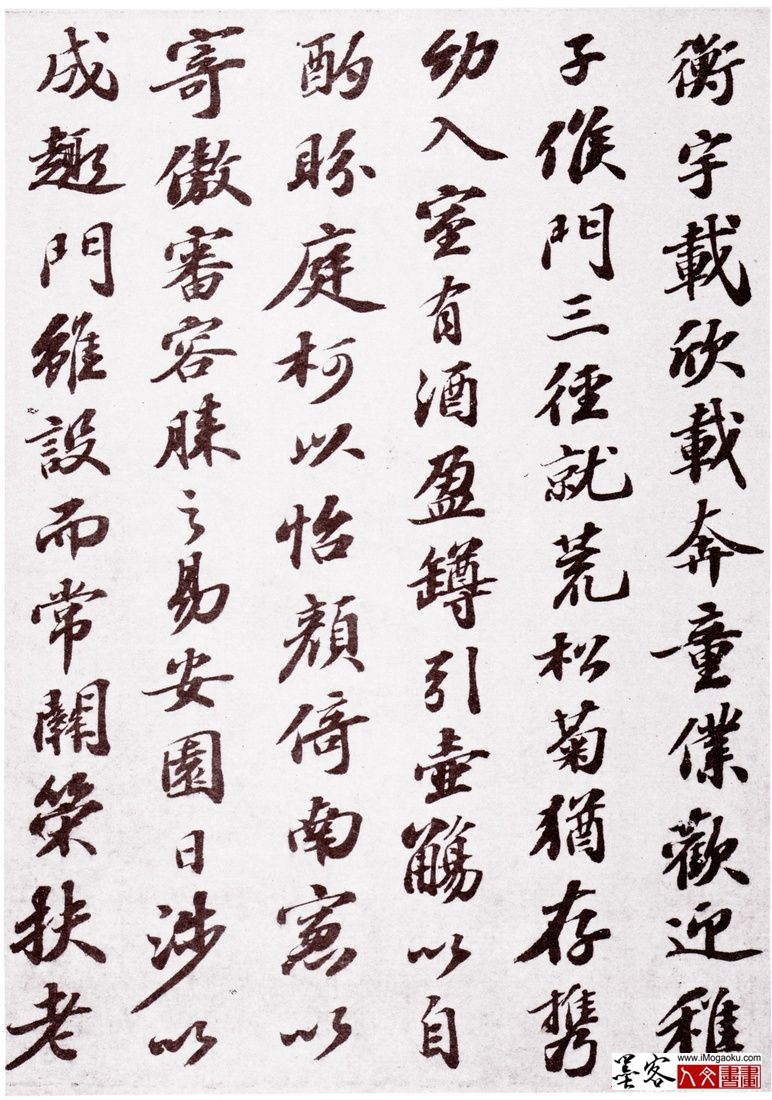 衡宇載欣載奔童僕歡迎稚
子候門三徑就荒松菊猶存攜
幼入室有酒盈罇引壺觴以自
酌眄庭柯以怡顏倚南窻以
寄傲審容膝之易安園日涉以
成趣門雖設而常關策扶老
墨客
www.iMogaoku.com
人文書畫